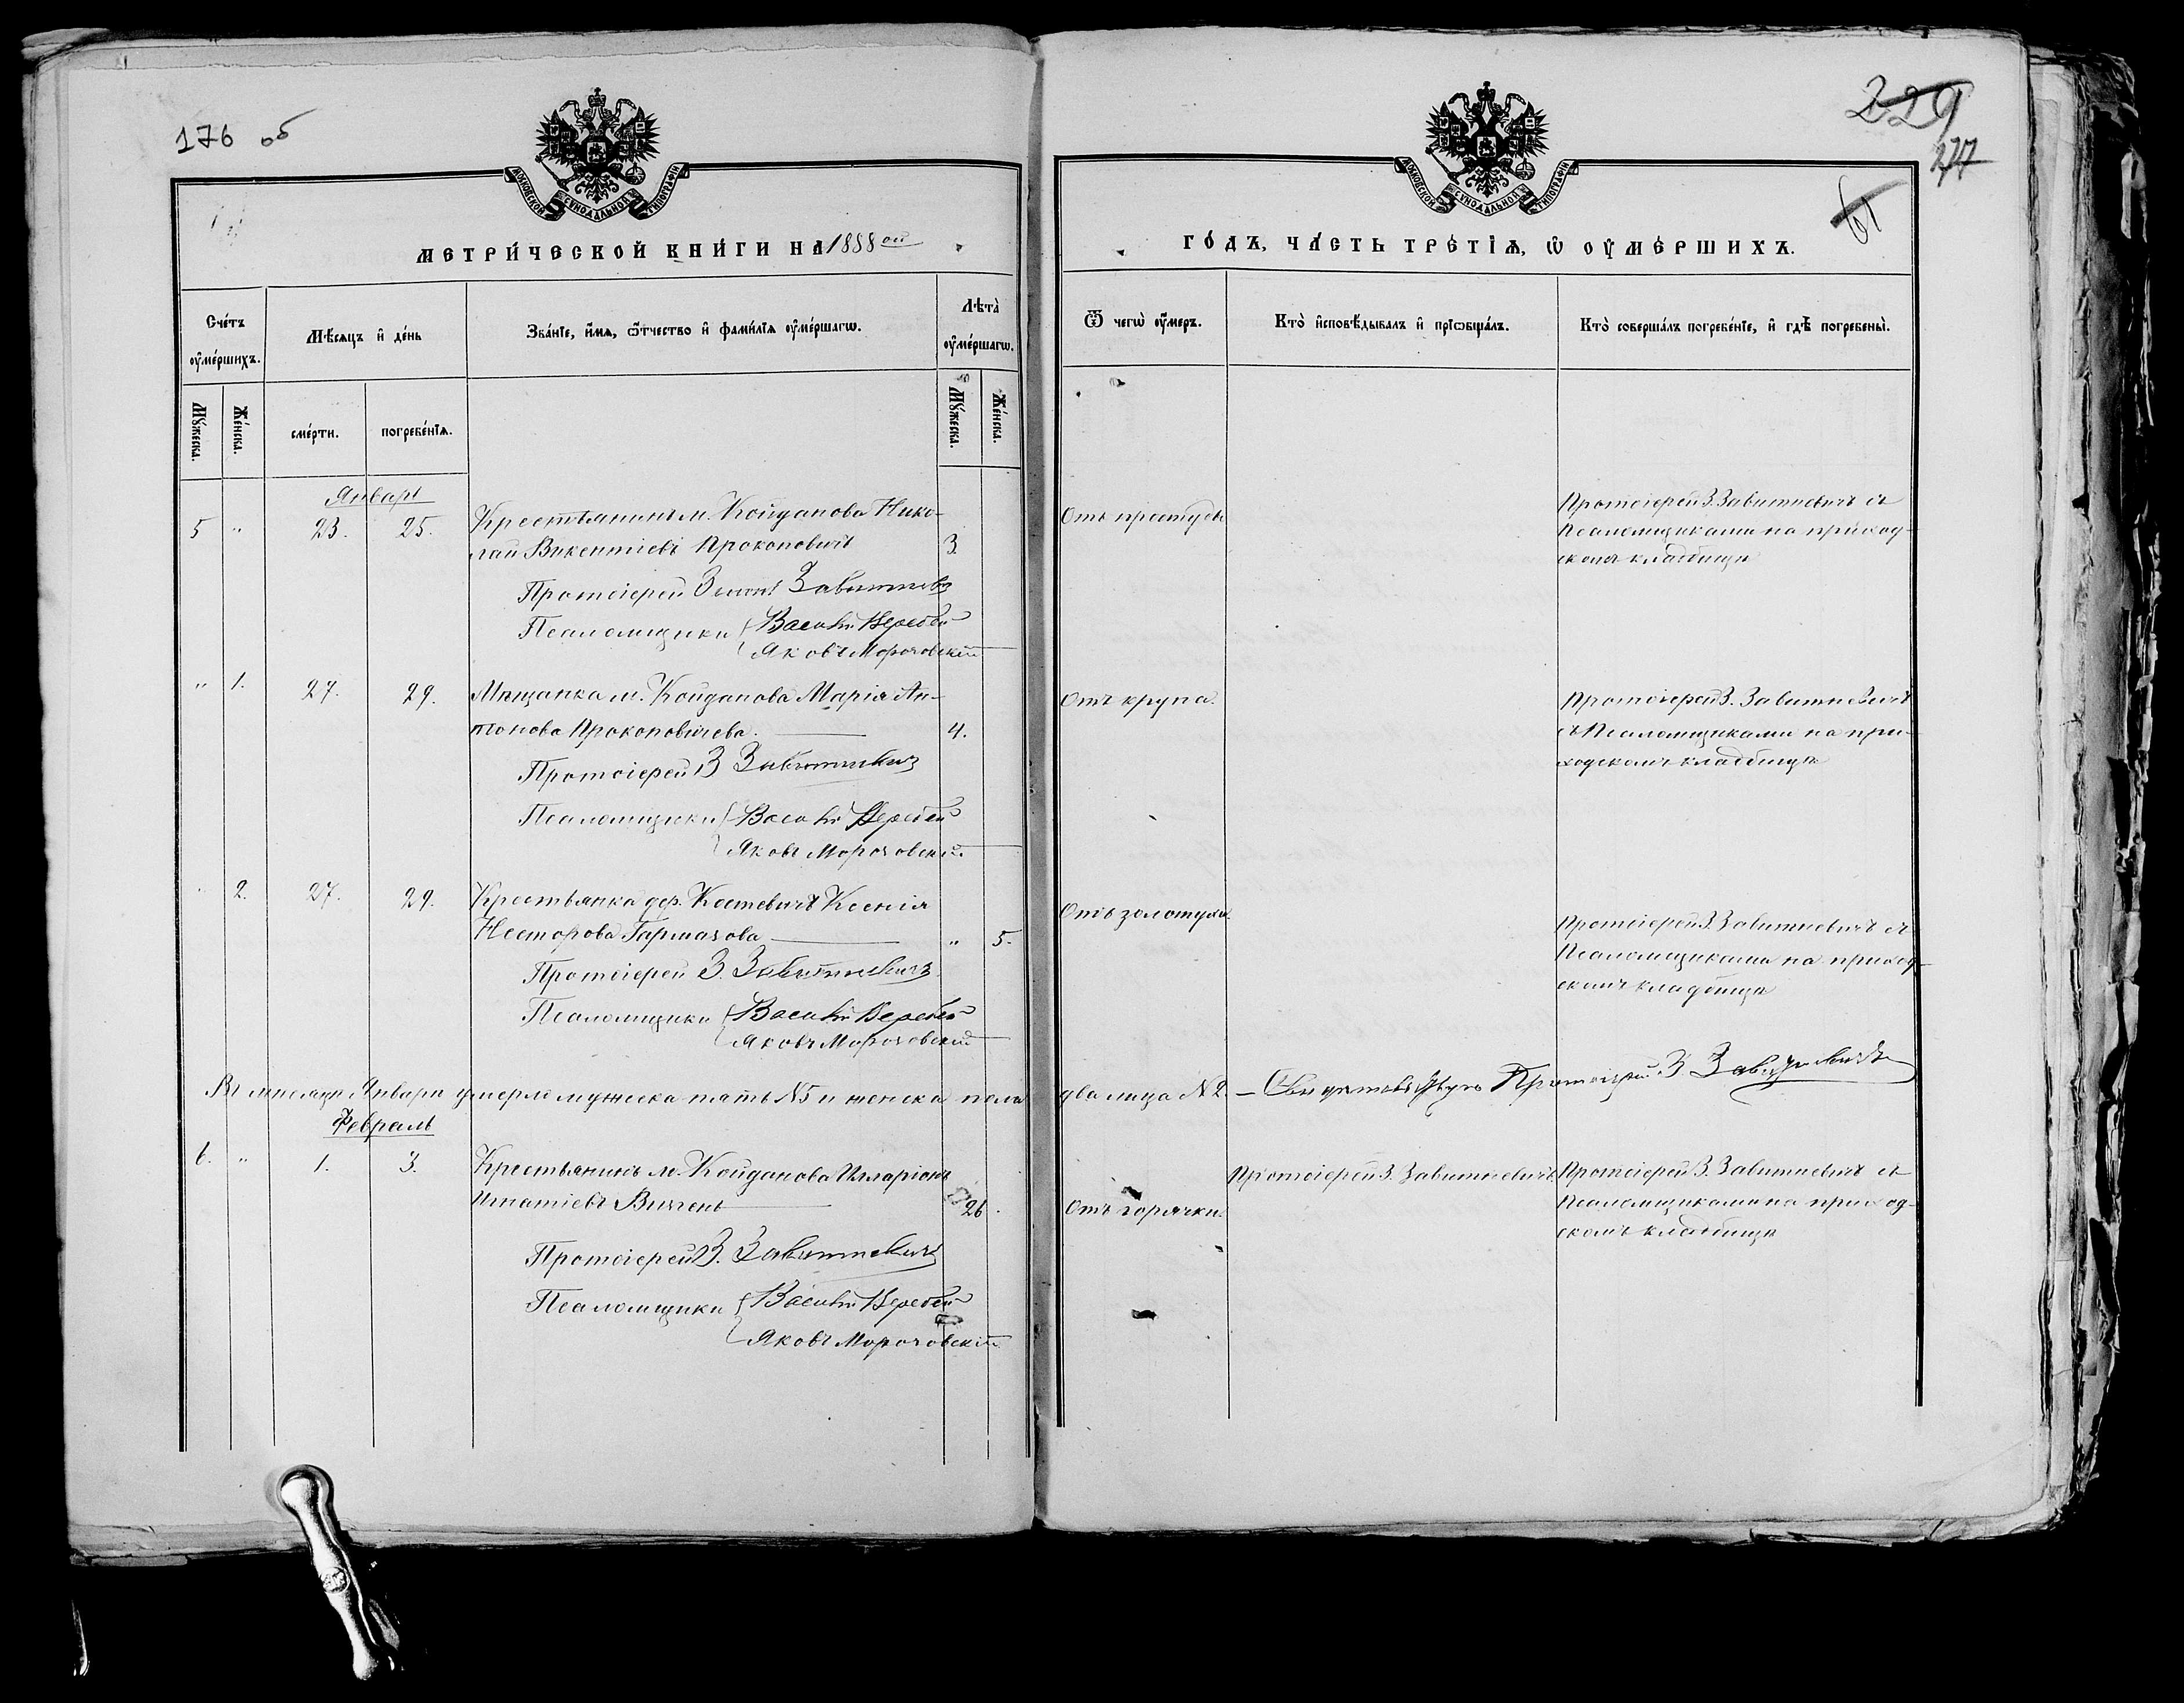 176 об
МОСКОВСКОЙ СѴНОДАЛЬНОЙ ТИПОГРАФІИ
МЕТРИ́ЧЕСКОЙ КНИ́ГИ НА 1888 ой
Сче́тъ ᲂу҆ме́ршихъ.
Мѣ́сяцъ и҆ де́нь
Зва́нїе, и҆́мѧ, ѻ҆́тчество и҆ фами́лїѧ ᲂу҆ме́ршагѡ.
Лѣ́та ᲂу҆ме́ршагѡ.
Мꙋ́жеска.
Же́нска.
сме́рти.
погребе́нїѧ.
Мꙋ́жеска.
Же́нска.
Январь
5 " 23. 25. Крестьянинъ м. Койданова Нико-
лай Викентіевъ Прокоповичъ 3.
Протоіерей Завитневичъ
Псаломщики Василій Веребей
Яковъ Морочовскій
" 1. 27. 29. Мѣщанка м. Койданова Марія Ан-
тонова Прокоповичева. 4.
Протоіерей З Завитневичъ
Псаломщики Василій Веребей
Яковъ Морочовскій
2. 27. 29. Крестьянка дер. Костевичъ Ксенія
Несторова Гармазова " 5.
Протоіерей З. Завитневичъ
Псаломщики Василій Веребей
Яковъ Морочовскій
Въ мѣсяцѣ Январѣ умерло мужеска пять №5 и женска пола
Февраль
6. " 1. 3. Крестьянинъ м. Койданова Илларіонъ
Игнатіевъ Вичень 26
Протоіерей З. Завитневичъ
Псаломщики Василій Веребей
Яковъ Морочовскій
229
277
61
МОСКОВСКОЙ СѴНОДАЛЬНОЙ ТИПОГРАФІИ
ГО́ДЪ, ЧА́СТЬ ТРЕ́ТЇѦ, Ѡ҆ ОУ҆МЕ́РШИХЪ.
Ѿ чегѡ̀ ᲂу҆́меръ.
Кто̀ и҆сповѣ́дывалъ и҆ прїѡбща́лъ.
Кто̀ соверша́лъ погребе́нїе, и҆ гдѣ̀ погребены̀.
Отъ простуды
Протоіерей З. Завитневичъ съ
Псаломщиками на приход-
скомъ кладбищѣ
Отъ крупа.
Протоіерей З. Завитневичъ
съ Псаломщиками на при-
ходскомъ кладбищѣ
Отъ золотухи.
Протоіерей З. Завитневичъ съ
Псаломщиками на приход-
скомъ кладбищѣ
два лица №2. — Свидѣтельствую Протоіерей З Завитневичъ
Отъ горячки.
Протоіерей З. Завитневичъ
Протоіерей З. Завитневичъ съ
Псаломщиками на приход-
скомъ кладбищѣ